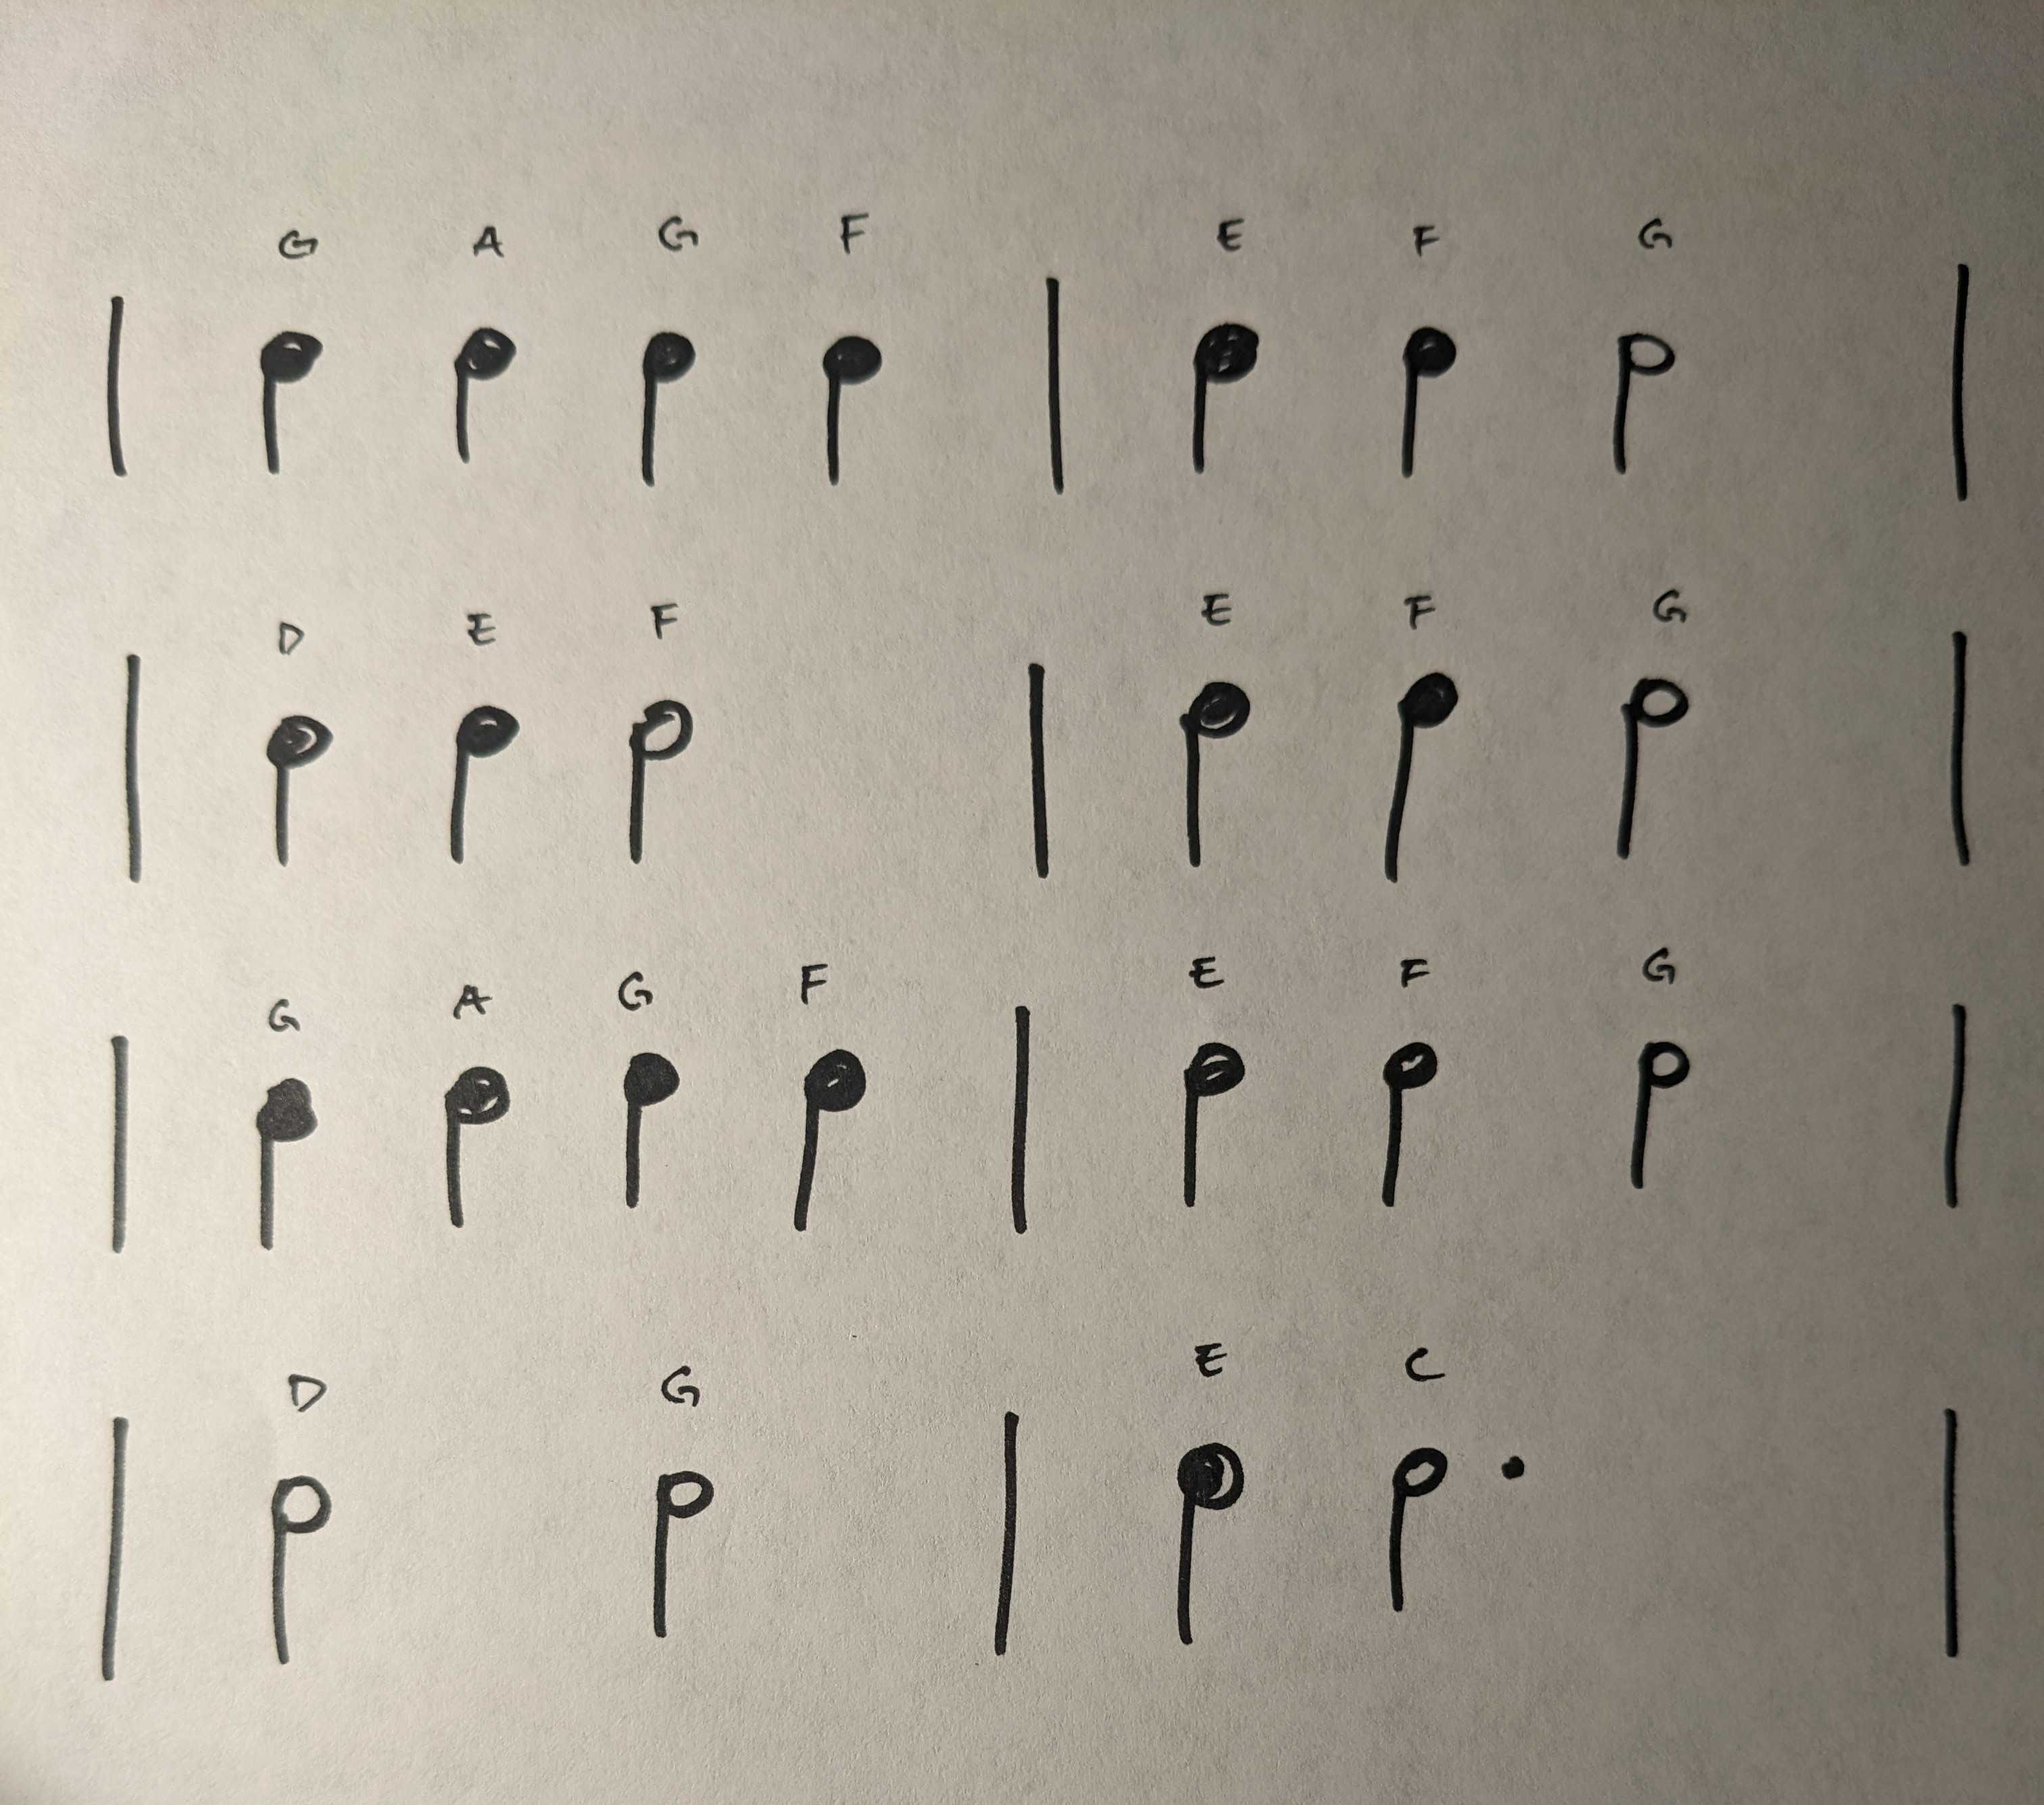 G A G F E F G
D E F E F G
G A G F E F G
D G E C